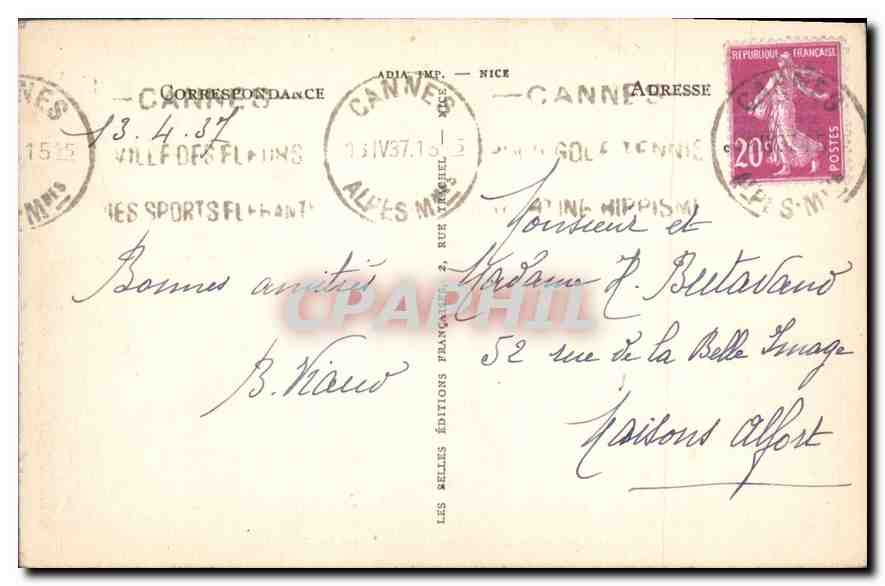 ADIA IMP. — NICE
CORRESPONDANCE
ADRESSE
13.4.37
CANNES
15 15
CANNES
VILLE DES FLEURS
DES SPORTS ELEGANTS
CANNES
13 IV 37. 15 15
ALPES Mmes
CANNES
GOLF TENNIS
HIPPISME
REPUBLIQUE FRANÇAISE
20c
POSTES
CANNES
ALPES-Mmes
Bonnes amitiés
B. Viaud
Monsieur et
Madame H. Bretavand
52 rue de la Belle Image
Maisons Alfort
LES BELLES ÉDITIONS FRANÇAISES, 2, RUE TRACHEL — NICE
CPAPHIL